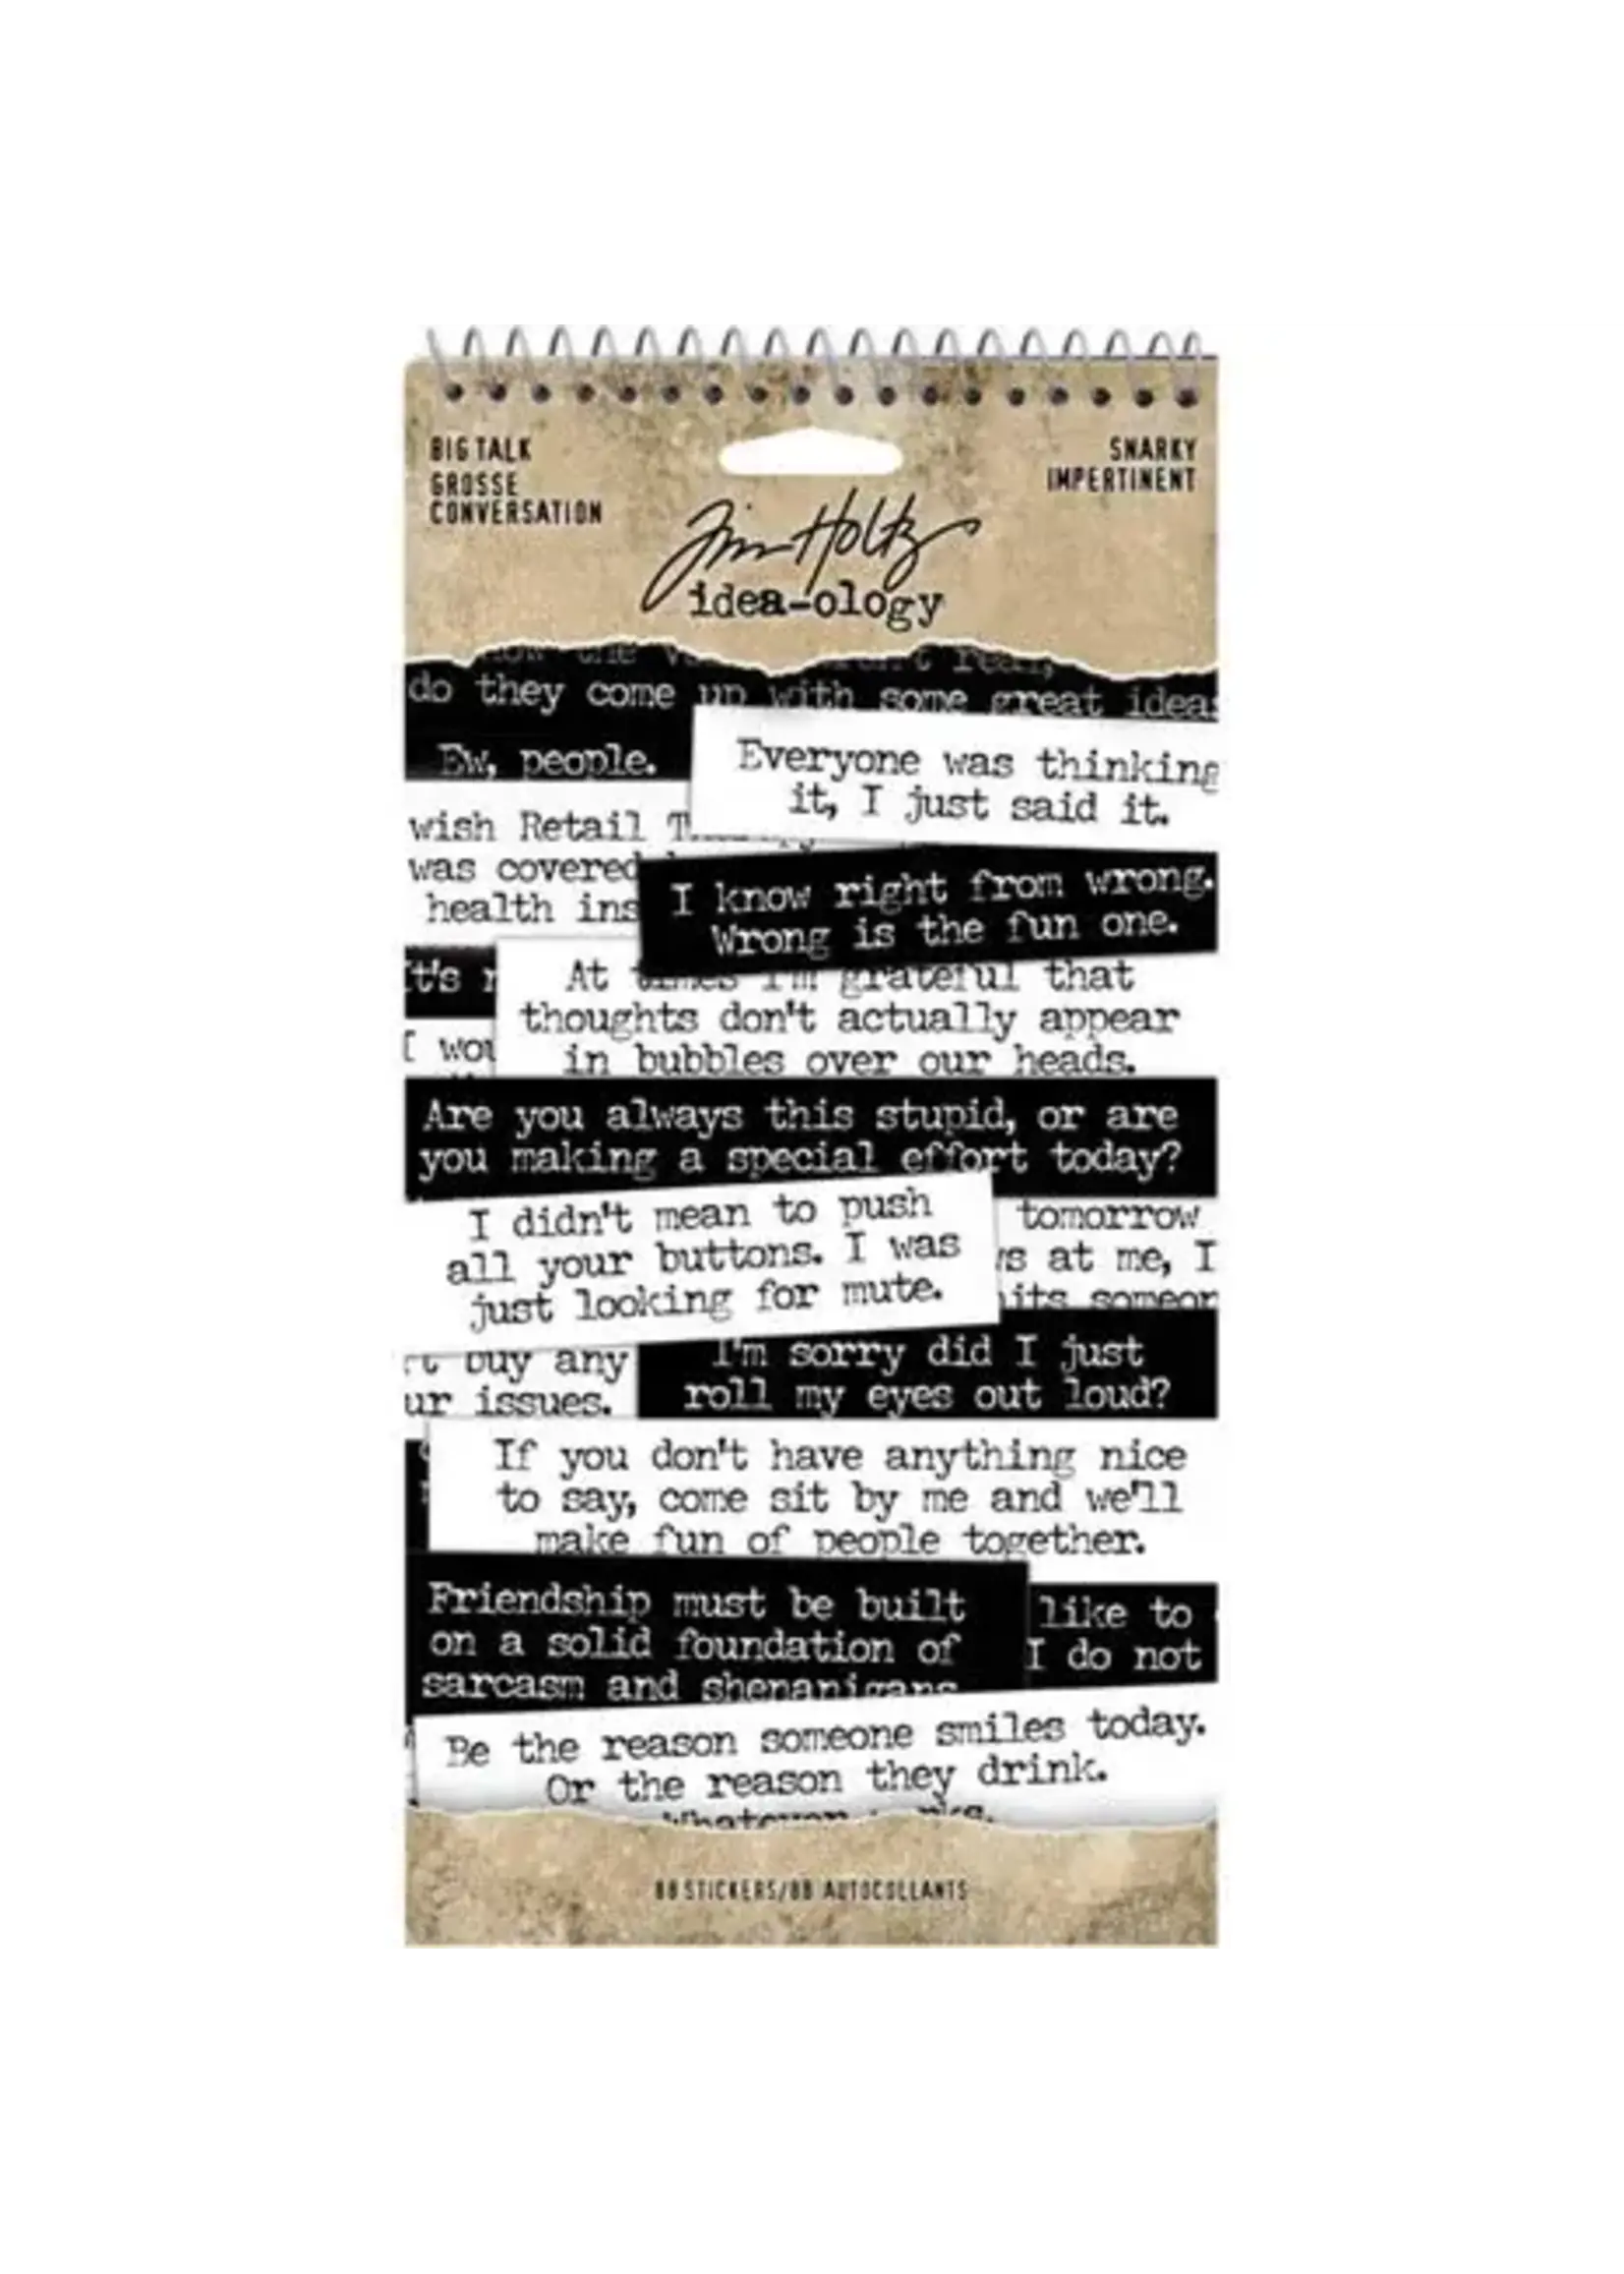 BIG TALK
GROSSE
CONVERSATION
SNARKY
IMPERTINENT
Tim Holtz
idea-ology
the
real,
do they come up with some great ideas
Ew, people.
Everyone was thinking
it, I just said it.
wish Retail
was covered
health ins
I know right from wrong.
Wrong is the fun one.
It's
At times I'm grateful that
thoughts don't actually appear
in bubbles over our heads.
I wou
Are you always this stupid, or are
you making a special effort today?
I didn't mean to push
all your buttons. I was
just looking for mute.
tomorrow
ws at me, I
hits someon
buy any
ur issues.
I'm sorry did I just
roll my eyes out loud?
If you don't have anything nice
to say, come sit by me and we'll
make fun of people together.
Friendship must be built
on a solid foundation of
sarcasm and shenanigans
like to
I do not
Be the reason someone smiles today.
Or the reason they drink.
Whatever works.
88 STICKERS/88 AUTOCOLLANTS